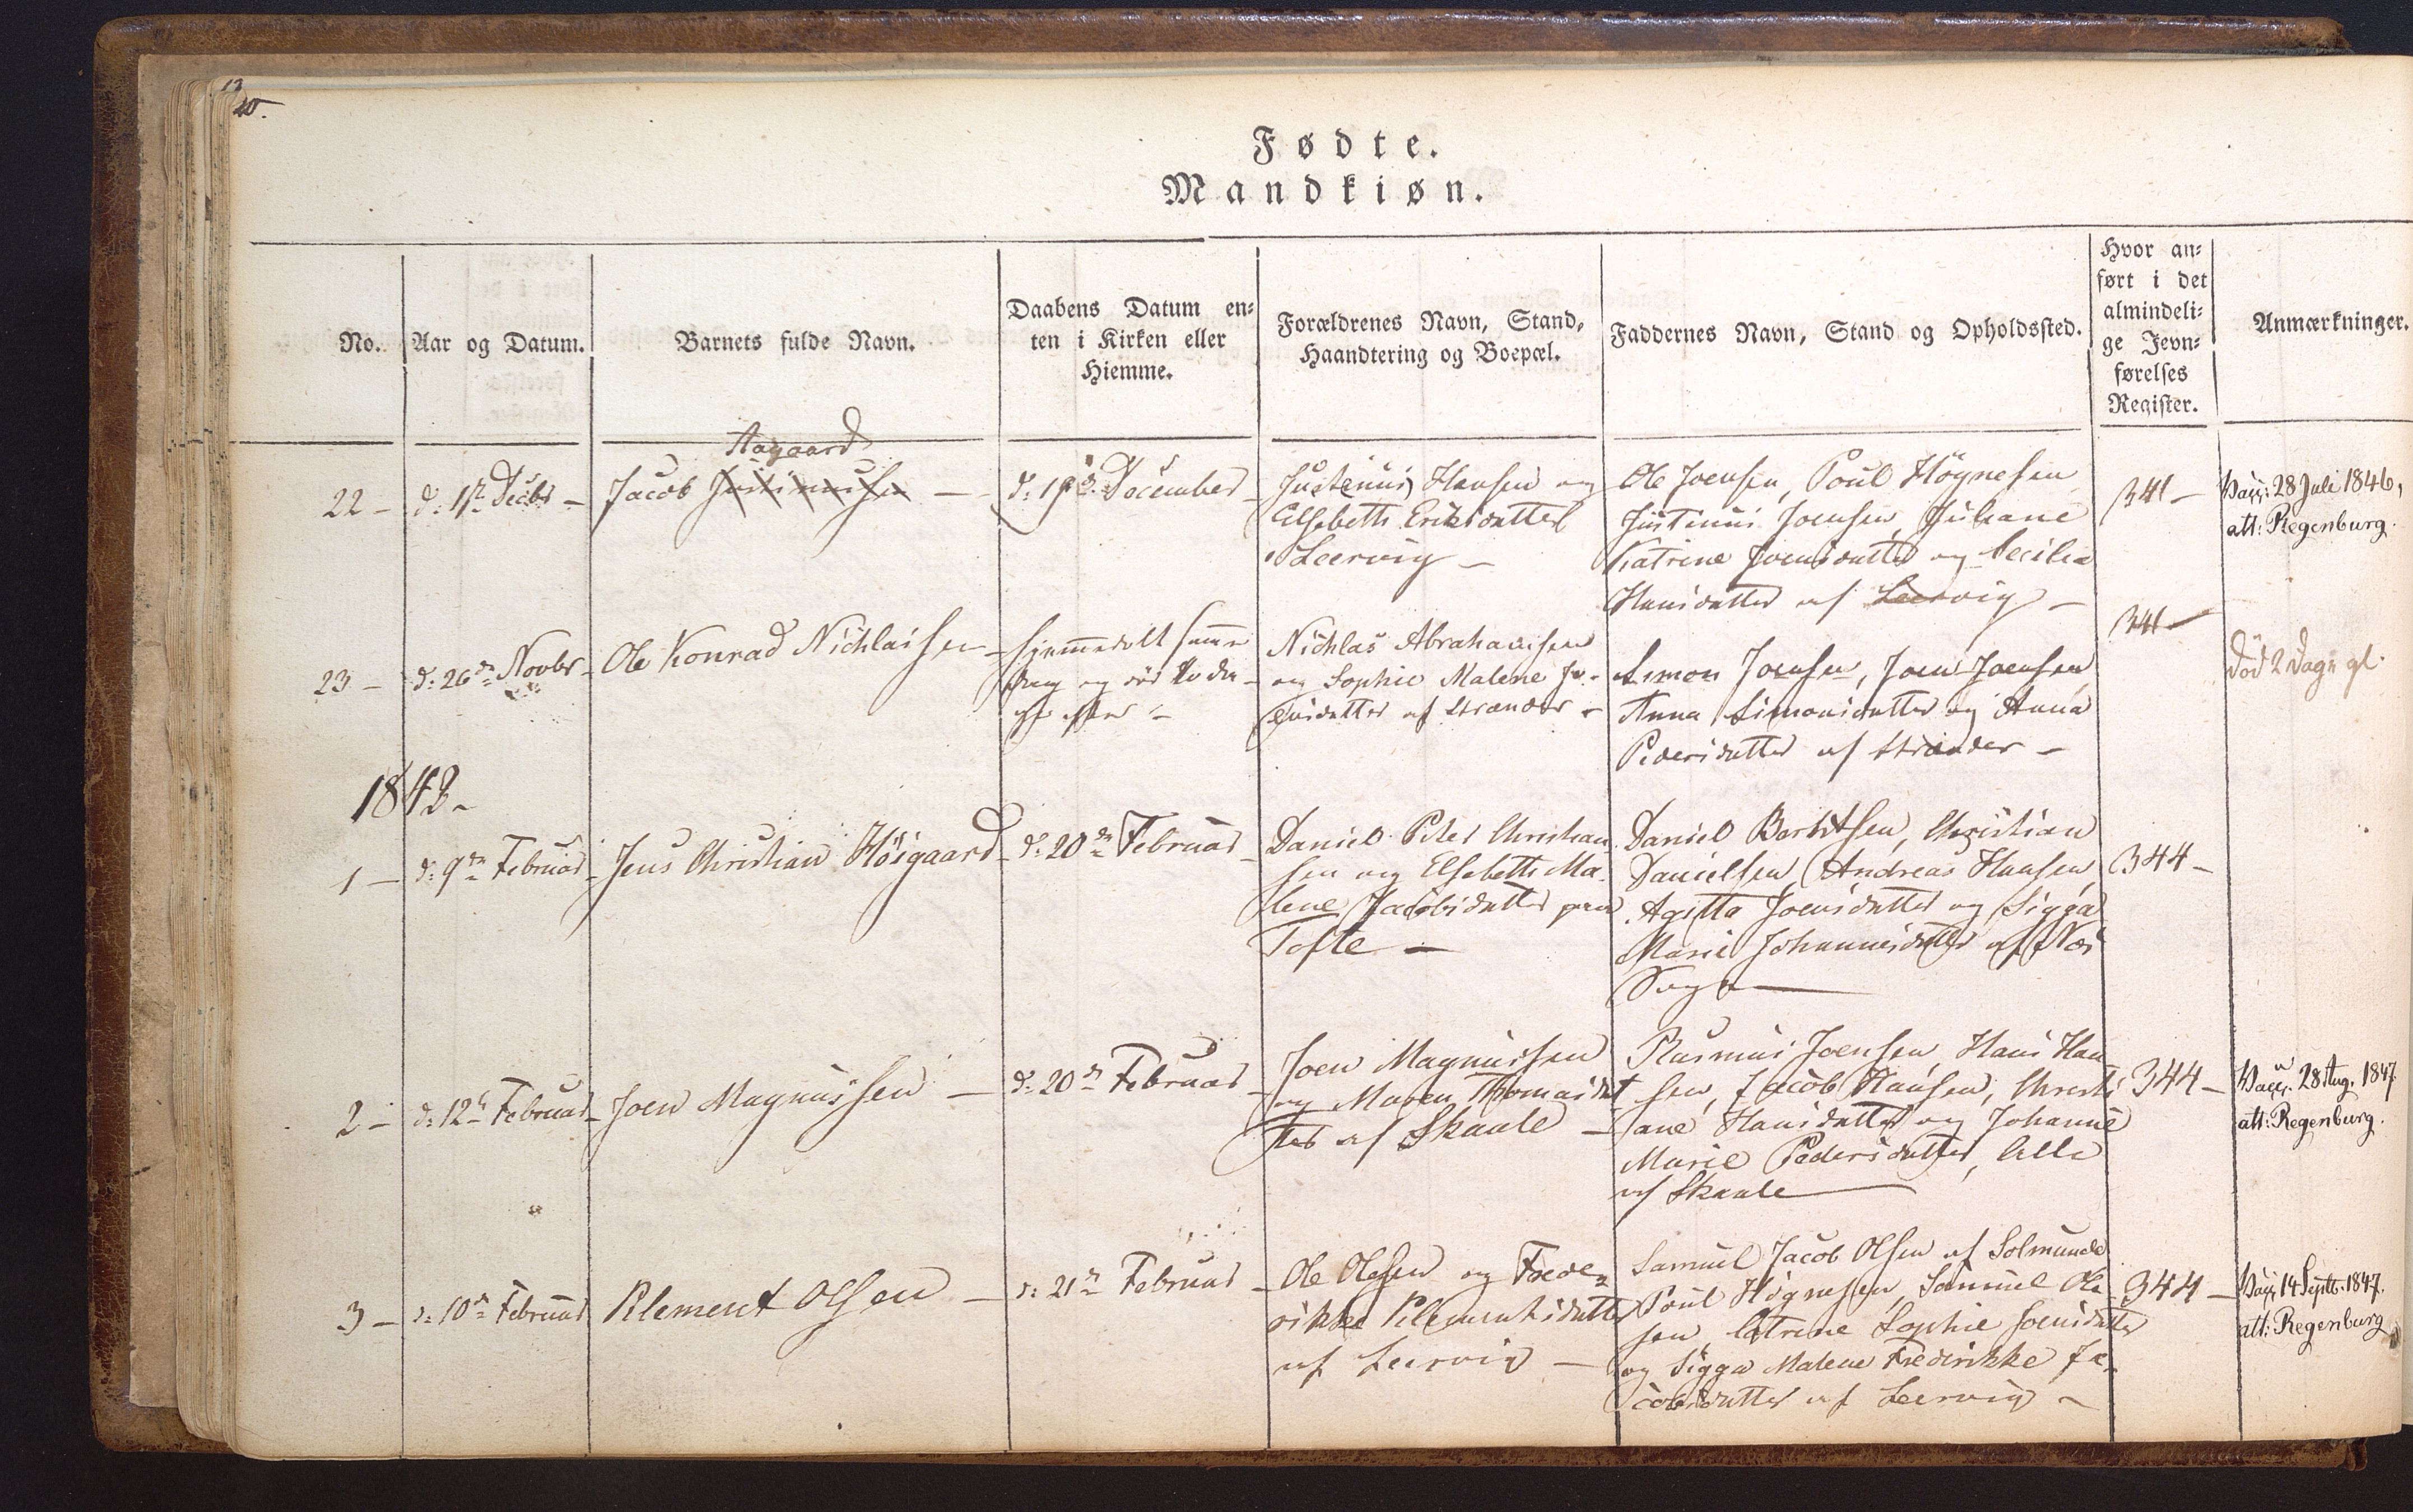 20.
Fødte.
Mandkiøn.
No.
Aar og Datum.
Barnets fulde Navn.
Daabens Datum en-
ten i Kirken eller
Hiemme.
Forældrenes Navn, Stand,
Haandtering og Boepæl.
Faddernes Navn, Stand og Opholdssted.
Hvor an-
ført i det
almindeli-
ge Jevn-
førelses
Register.
Anmærkninger.
22 -
d: 1ste Decbr -
Aagaard
Jacob Justinussen -
December
Justinus Hansen og
Elsebeth Eriksdatter
Leervig -
Ole Joensen, Poul Høgnesen
Justinus Joensen, Juliane
Katrine Joensdatter og Cecilia
Hansdatter af Leervig -
341 -
Vacc: 28 Juli 1846,
att: Regenburg.
23 -
d: 26de Novbr -
Ole Konrad Nichlaisen -
Hjemmedøbt samme
Dag og død to Da-
ge efter -
Nichlas Abrahamsen
og Sophie Malene Jo-
ensdatter af Strænder -
Simon Joensen, Joen Joensen
Anna Simonsdatter og Anna
Pedersdatter af Strænder -
341 -
død 2 Dage gl.
1843 -
1 -
d: 9de Februar -
Jens Christian Højgaard -
d: 20de Februar -
Daniel Peter Christian-
sen og Elsebeth Ma-
lene Jacobsdatter paa
Tofte -
Daniel Christian
Danielsen, Andreas Hansen,
Agitta Joensdatter og Sigga
Marie Johannesdatter af Næs
344 -
2 -
d: 12te Februar -
Joen Magnussen -
d: 20de Februar -
Joen Magnussen
og Maren Thomasdat
ter af Skaale -
Rasmus Joensen, Hans Han
sen, Jacob Hansen, Christi
ane Hansdatter og Johanne
Marie Pedersdatter, Alle
af Skaale
344 -
Vacc. 28 Aug. 1847.
att: Regenburg.
3 -
d: 10de Februar
Klement Olsen -
d: 21de Februar -
Ole Olesen og Frede-
rikke Klementsdatter
af Leervig -
Samuel Jacob Olsen af Solmunde
Poul Høgnesen, Samuel Ole-
sen, Catrine Sophie Joensdatter
og Sigga Malene Frederikke Ja-
cobsdatter af Leervig -
344 -
Vacc. 14 Septb. 1847.
att: Regenburg